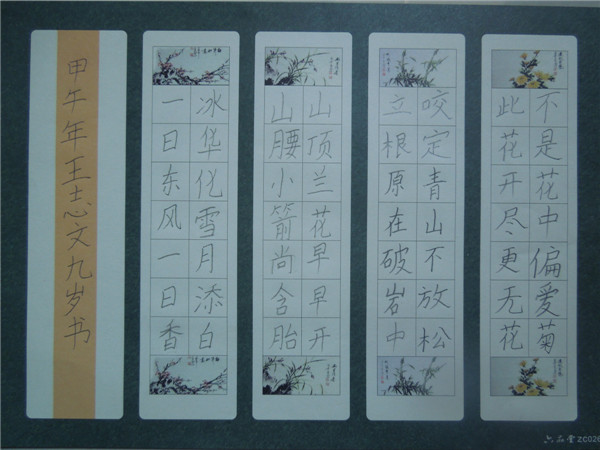 不是花中偏爱菊
此花开尽更无花
咬定青山不放松
立根原在破岩中
山顶兰花早早开
山腰小箭尚含胎
冰华化雪月添白
一日东风一日香
甲午年王志文九岁书
六品堂 ZC026